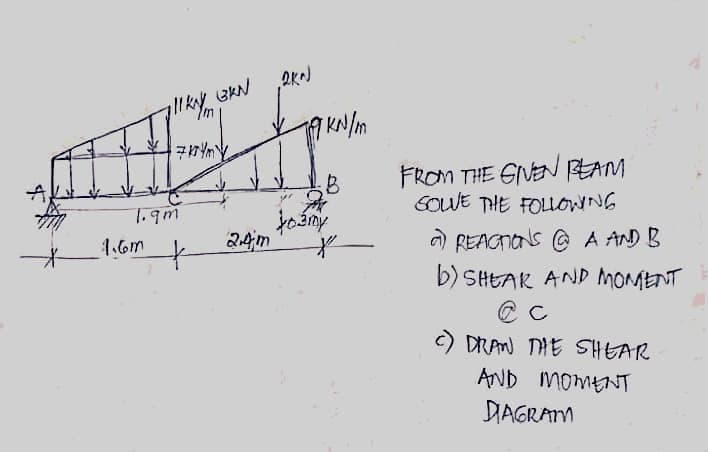 2KN
11 KN/m 3KN
9 KN/m
7 KN/m
A
C
B
1.9m
0.3m
1.6m
2.4m
FROM THE GIVEN BEAM
SOLVE THE FOLLOWING
a) REACTIONS @ A AND B
b) SHEAR AND MOMENT
@ C
c) DRAW THE SHEAR
AND MOMENT
DIAGRAM